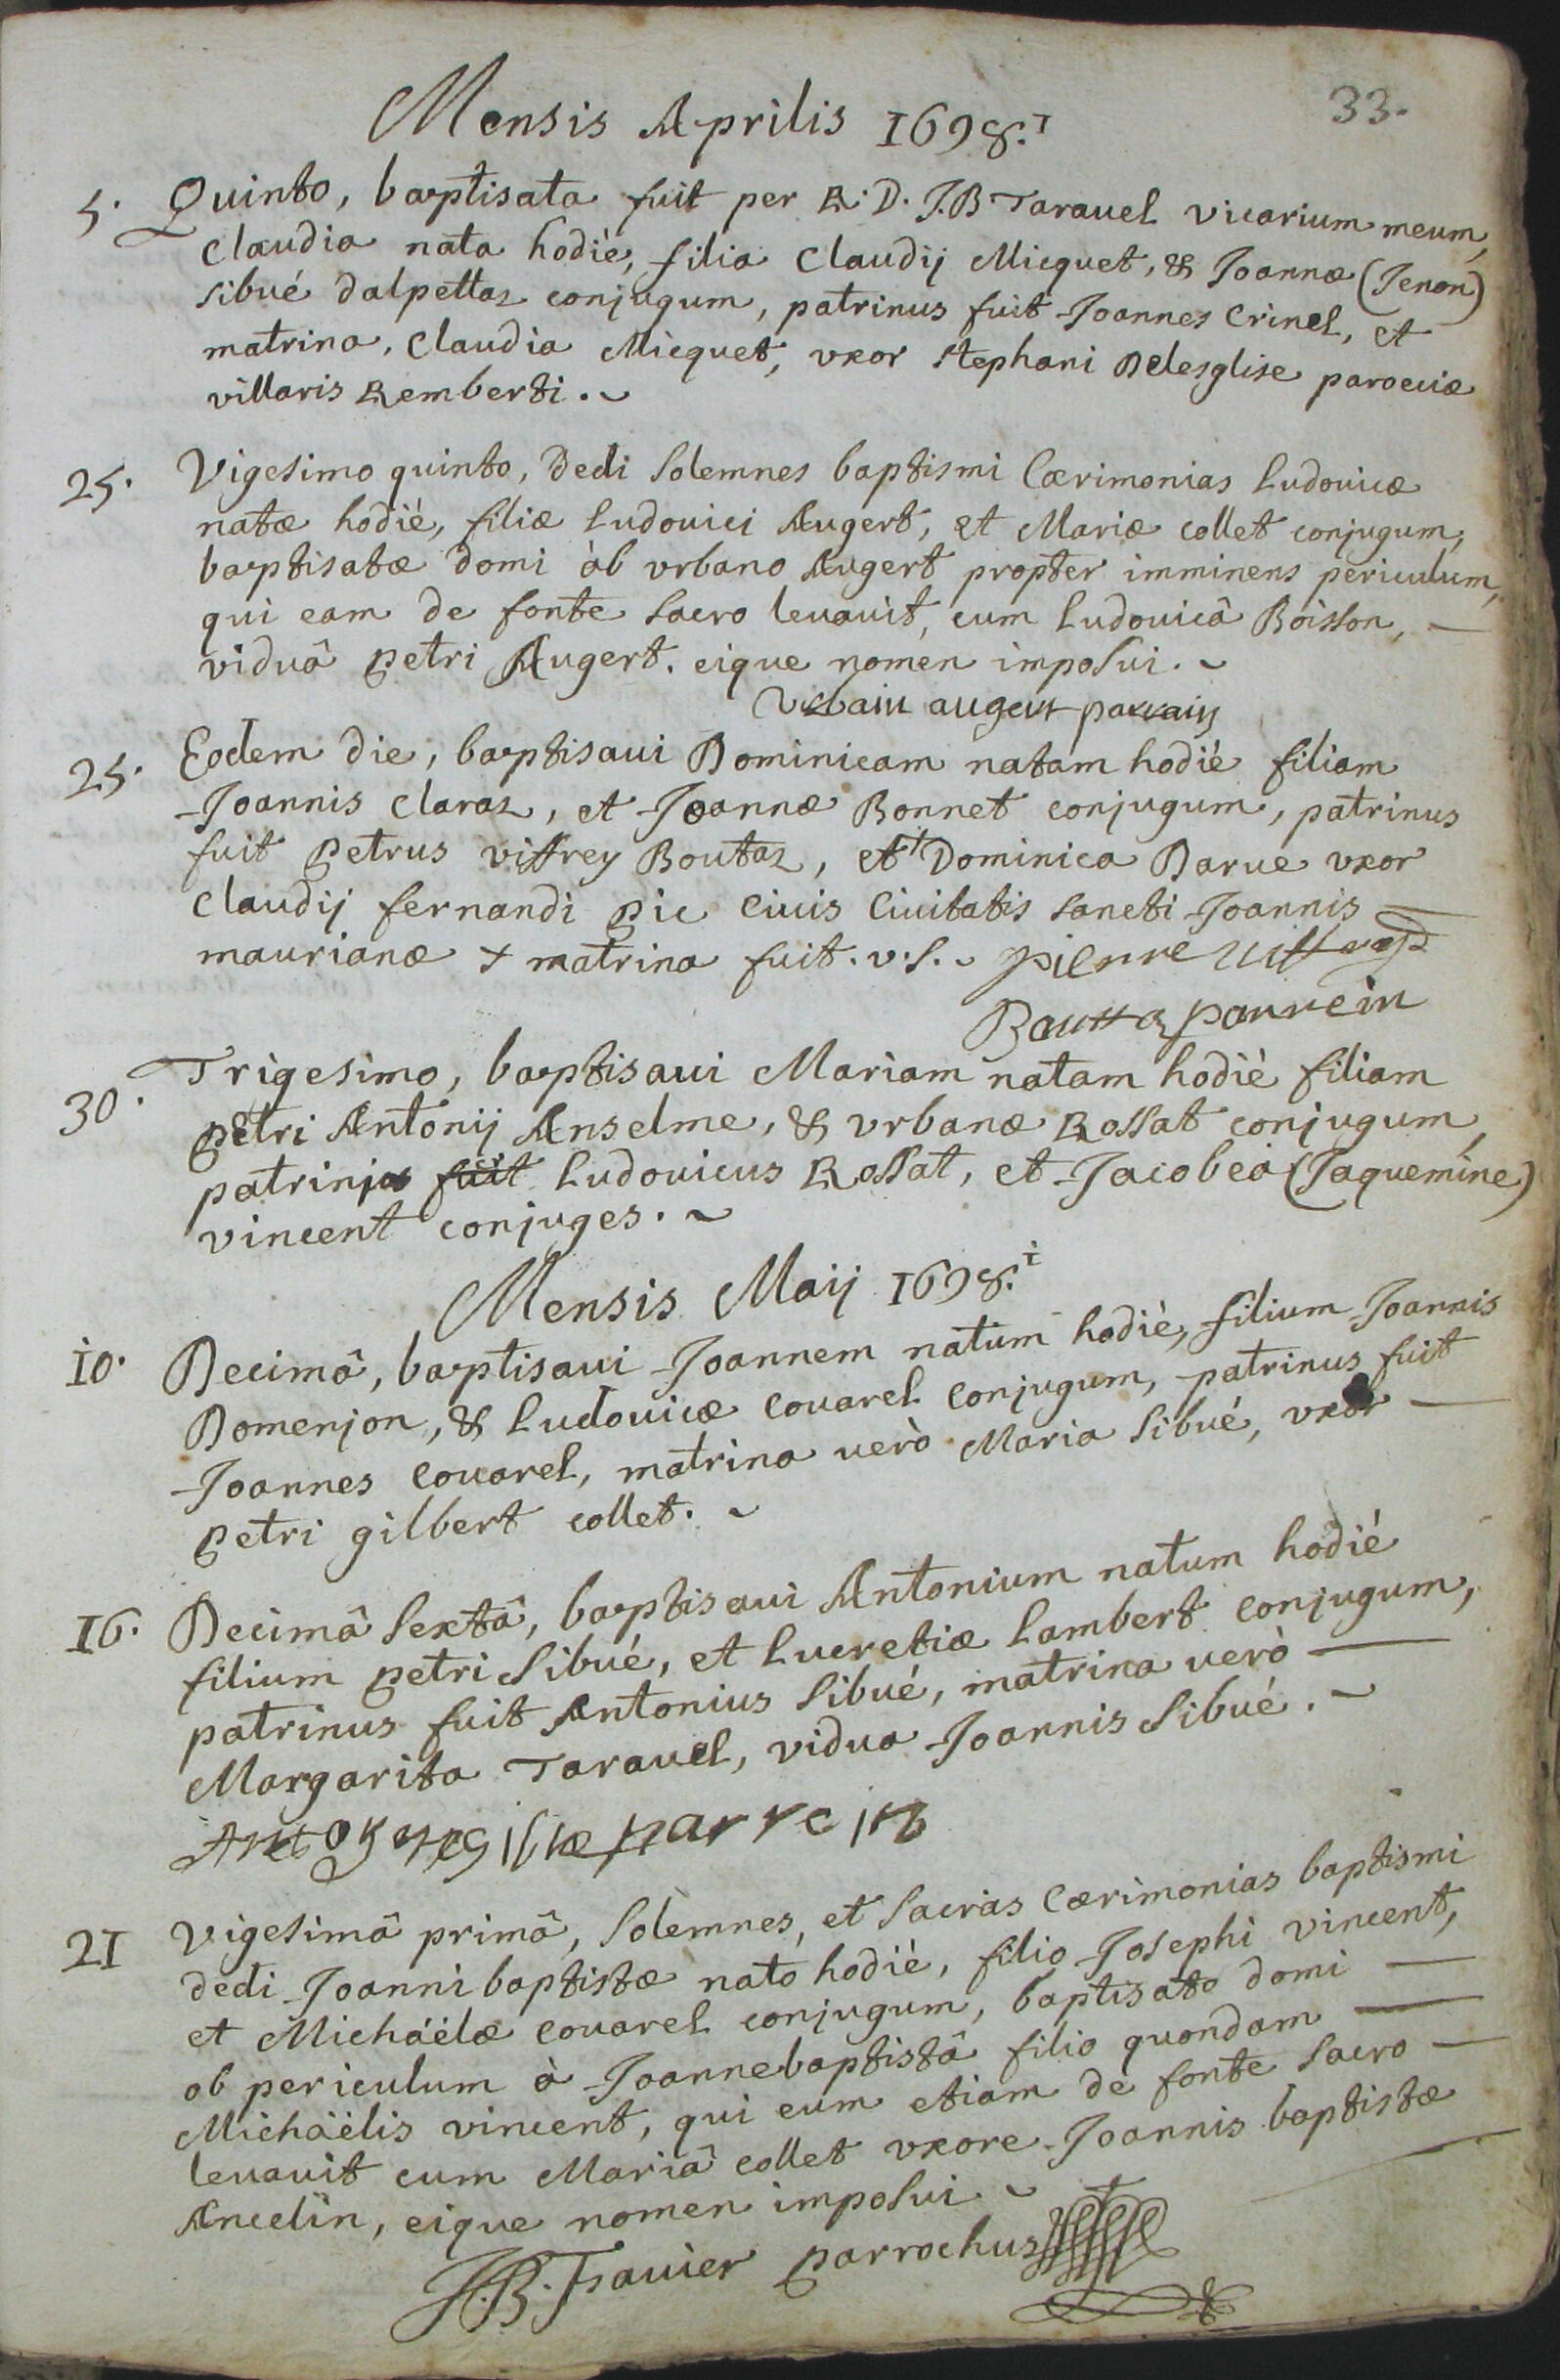 33.
Mensis Aprilis 1698.i
5. Quinto, baptisata fuit per R. D. J. B. Tarauel vicarium meum,
Claudia nata hodiè, filia Claudij Micquet, & Joannæ (Jenon)
sibué dalpettaz conjugum, patrinus fuit Joannes Crinel, et
matrina, Claudia Micquet, vxor stephani Delesglise parœciæ
villaris Remberti.
25. Vigesimo quinto, dedi solemnes baptismi Cærimonias Ludouicæ
natæ hodiè, filiæ Ludouici Augert, et Mariæ collet conjugum,
baptisatæ domi ab vrbano Augert propter imminens periculum,
qui eam de fonte sacro leuauit, cum Ludouicâ Boisson,
viduâ petri Augert. eique nomen imposui.
Vrbain augert parrain
25. Eodem die, baptisaui Dominicam natam hodiè filiam
Joannis Claraz, et Joannæ Bonnet conjugum, patrinus
fuit petrus vittrey Boutaz, et + Dominica Darue vxor
Claudij fernandi pic Ciuis Ciuitatis sancti Joannis
maurianæ + matrina fuit. v. s. pierre vittrey
Boutta parrein
30. Trigesimo, baptisaui Mariam natam hodiè filiam
petri Antonij Anselme, & vrbanæ Rossat conjugum,
patrini fuit Ludouicus Rossat, et Jacobea (Jaquemine)
vincent conjuges.
Mensis Maij 1698.i
10. Decimâ, baptisaui Joannem natum hodiè, filium Joannis
Domenjon, & Ludouicæ Couarel conjugum, patrinus fuit
Joannes Couarel, matrina uerò Maria Sibué, vxor
petri gilbert collet.
16. Decimâ sextâ, baptisaui Antonium natum hodiè
filium petri Sibué, et Lucretiæ Lambert conjugum,
patrinus fuit Antonius Sibué, matrina uerò
Margarita Tarauel, vidua Joannis Sibué.
parrein
21 Vigesimâ primâ, solemnes, et sacras Cærimonias baptismi
dedi Joanni baptistæ nato hodiè, filio Josephi vincent,
et Michäelæ Couarel conjugum, baptisato domi
ob periculum à Joannebaptistâ filio quondam
Michäelis vincent, qui eum etiam de fonte sacro
leuauit cum Mariâ collet vxore Joannis baptistæ
Ancelin, eique nomen imposui.
J. B. Frauier parrochus